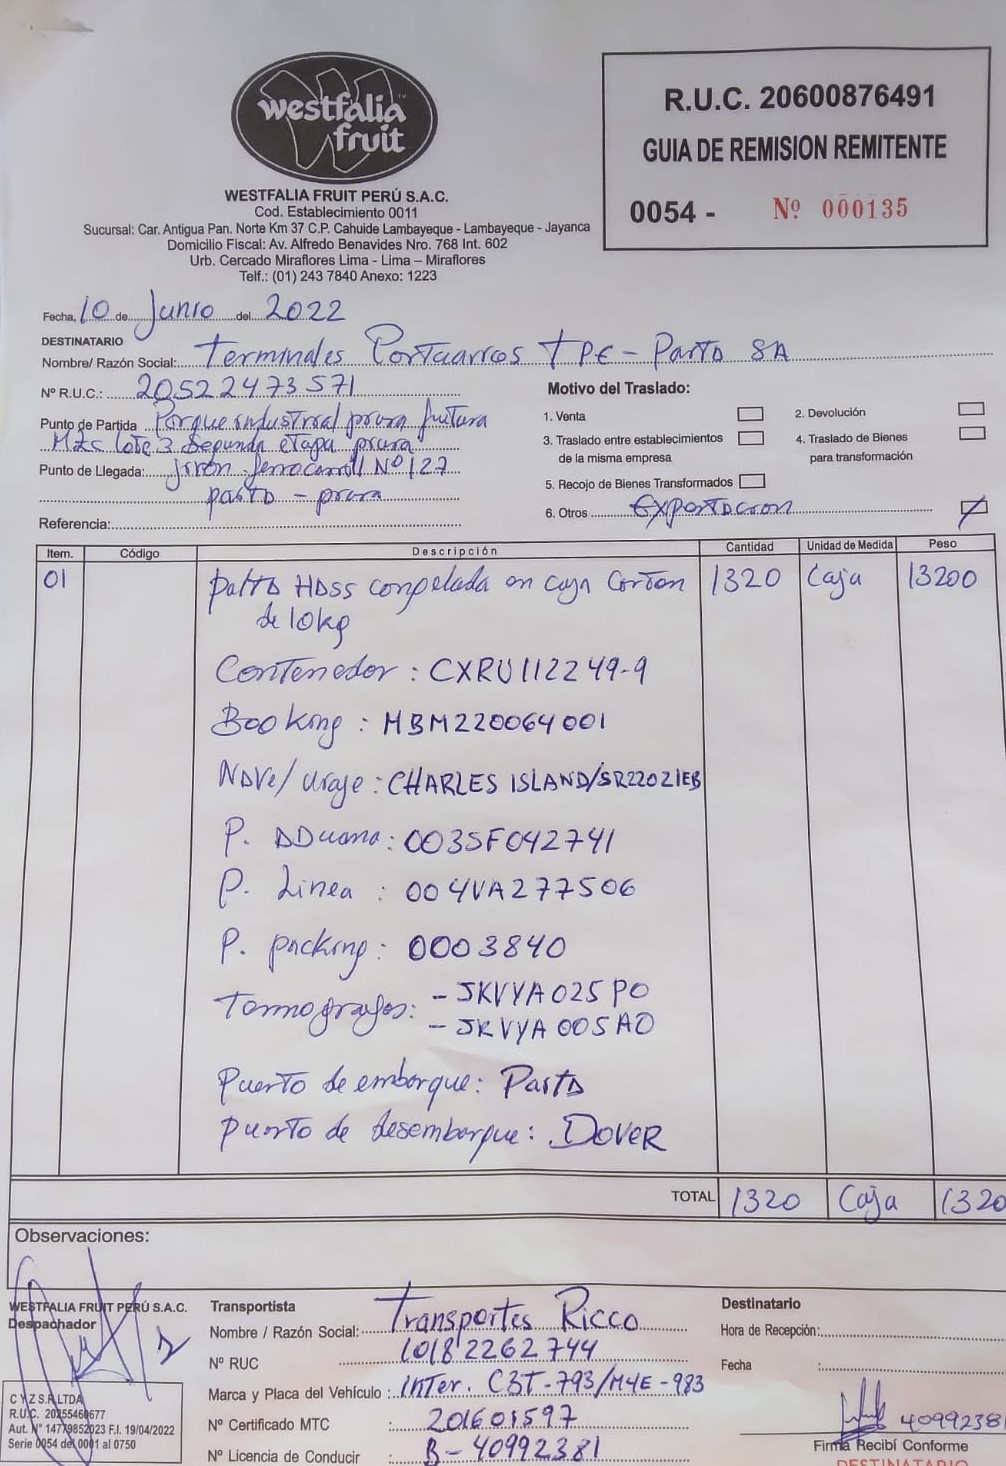 westfalia
fruit
WESTFALIA FRUIT PERÚ S.A.C.
Cod. Establecimiento 0011
Sucursal: Car. Antigua Pan. Norte Km 37 C.P. Cahuide Lambayeque - Lambayeque - Jayanca
Domicilio Fiscal: Av. Alfredo Benavides Nro. 768 Int. 602
Urb. Cercado Miraflores Lima - Lima – Miraflores
Telf.: (01) 243 7840 Anexo: 1223
R.U.C. 20600876491
GUIA DE REMISION REMITENTE
0054 - Nº 000135
Fecha, 10 de Junio del 2022
DESTINATARIO
Nombre/ Razón Social: Terminales Portuarios TPE - Paita SA
Nº R.U.C.: 20522473571
Punto de Partida Parque industrial piura futura
Mzc lote 3 Segunda etapa piura
Punto de Llegada: Jirón ferrocarril Nº 127
paita - piura
Referencia:
Motivo del Traslado:
1. Venta
2. Devolución
3. Traslado entre establecimientos
de la misma empresa
4. Traslado de Bienes
para transformación
5. Recojo de Bienes Transformados
6. Otros Exportacion
Item. Código Descripción Cantidad Unidad de Medida Peso
01 palta HASS congelada en caja Carton 1320 Caja 13200
de 10kg
Contenedor : CXRU112249-9
Booking : MBM220064001
Nave/ viaje : CHARLES ISLAND/SR22021EB
P. ADuana: 0035F042741
P. Linea : 004VA277506
P. packing: 0003840
Termografos: - JKVYA025P0
- JKVYA005A0
Puerto de embarque: Paita
puerto de desembarque: DOVER
TOTAL 1320 Caja 1320
Observaciones:
WESTFALIA FRUIT PERÚ S.A.C.
Despachador
C Y Z S.R.LTDA
R.U.C. 20255460677
Aut. N° 14779852023 F.I. 19/04/2022
Serie 0054 del 0001 al 0750
Transportista
Nombre / Razón Social: Transportes Ricco
Nº RUC 10182262744
Marca y Placa del Vehículo : Inter. C3T-793/M4E-983
Nº Certificado MTC : 201601597
Nº Licencia de Conducir : B-40992381
Destinatario
Hora de Recepción:
Fecha :
4099238
Firma Recibí Conforme
DESTINATARIO